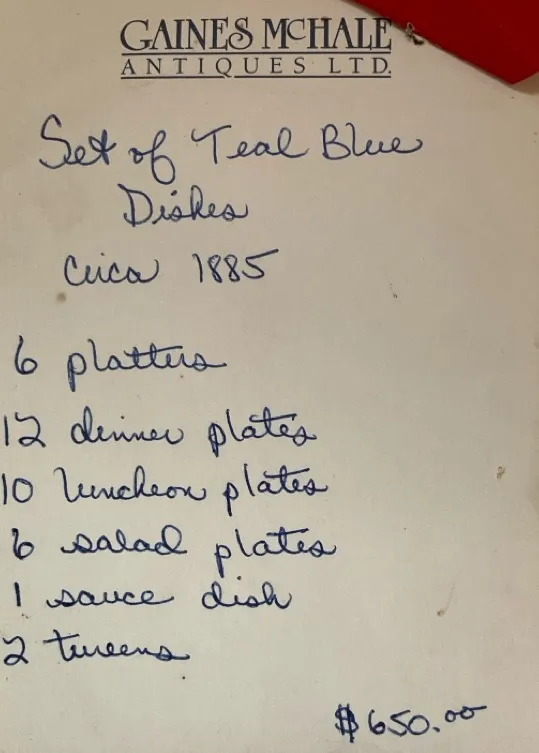 GAINES McHALE
ANTIQUES LTD.
Set of Teal Blue
Dishes
Circa 1885
6 platters
12 dinner plates
10 luncheon plates
6 salad plates
1 sauce dish
2 tureens
$650.00